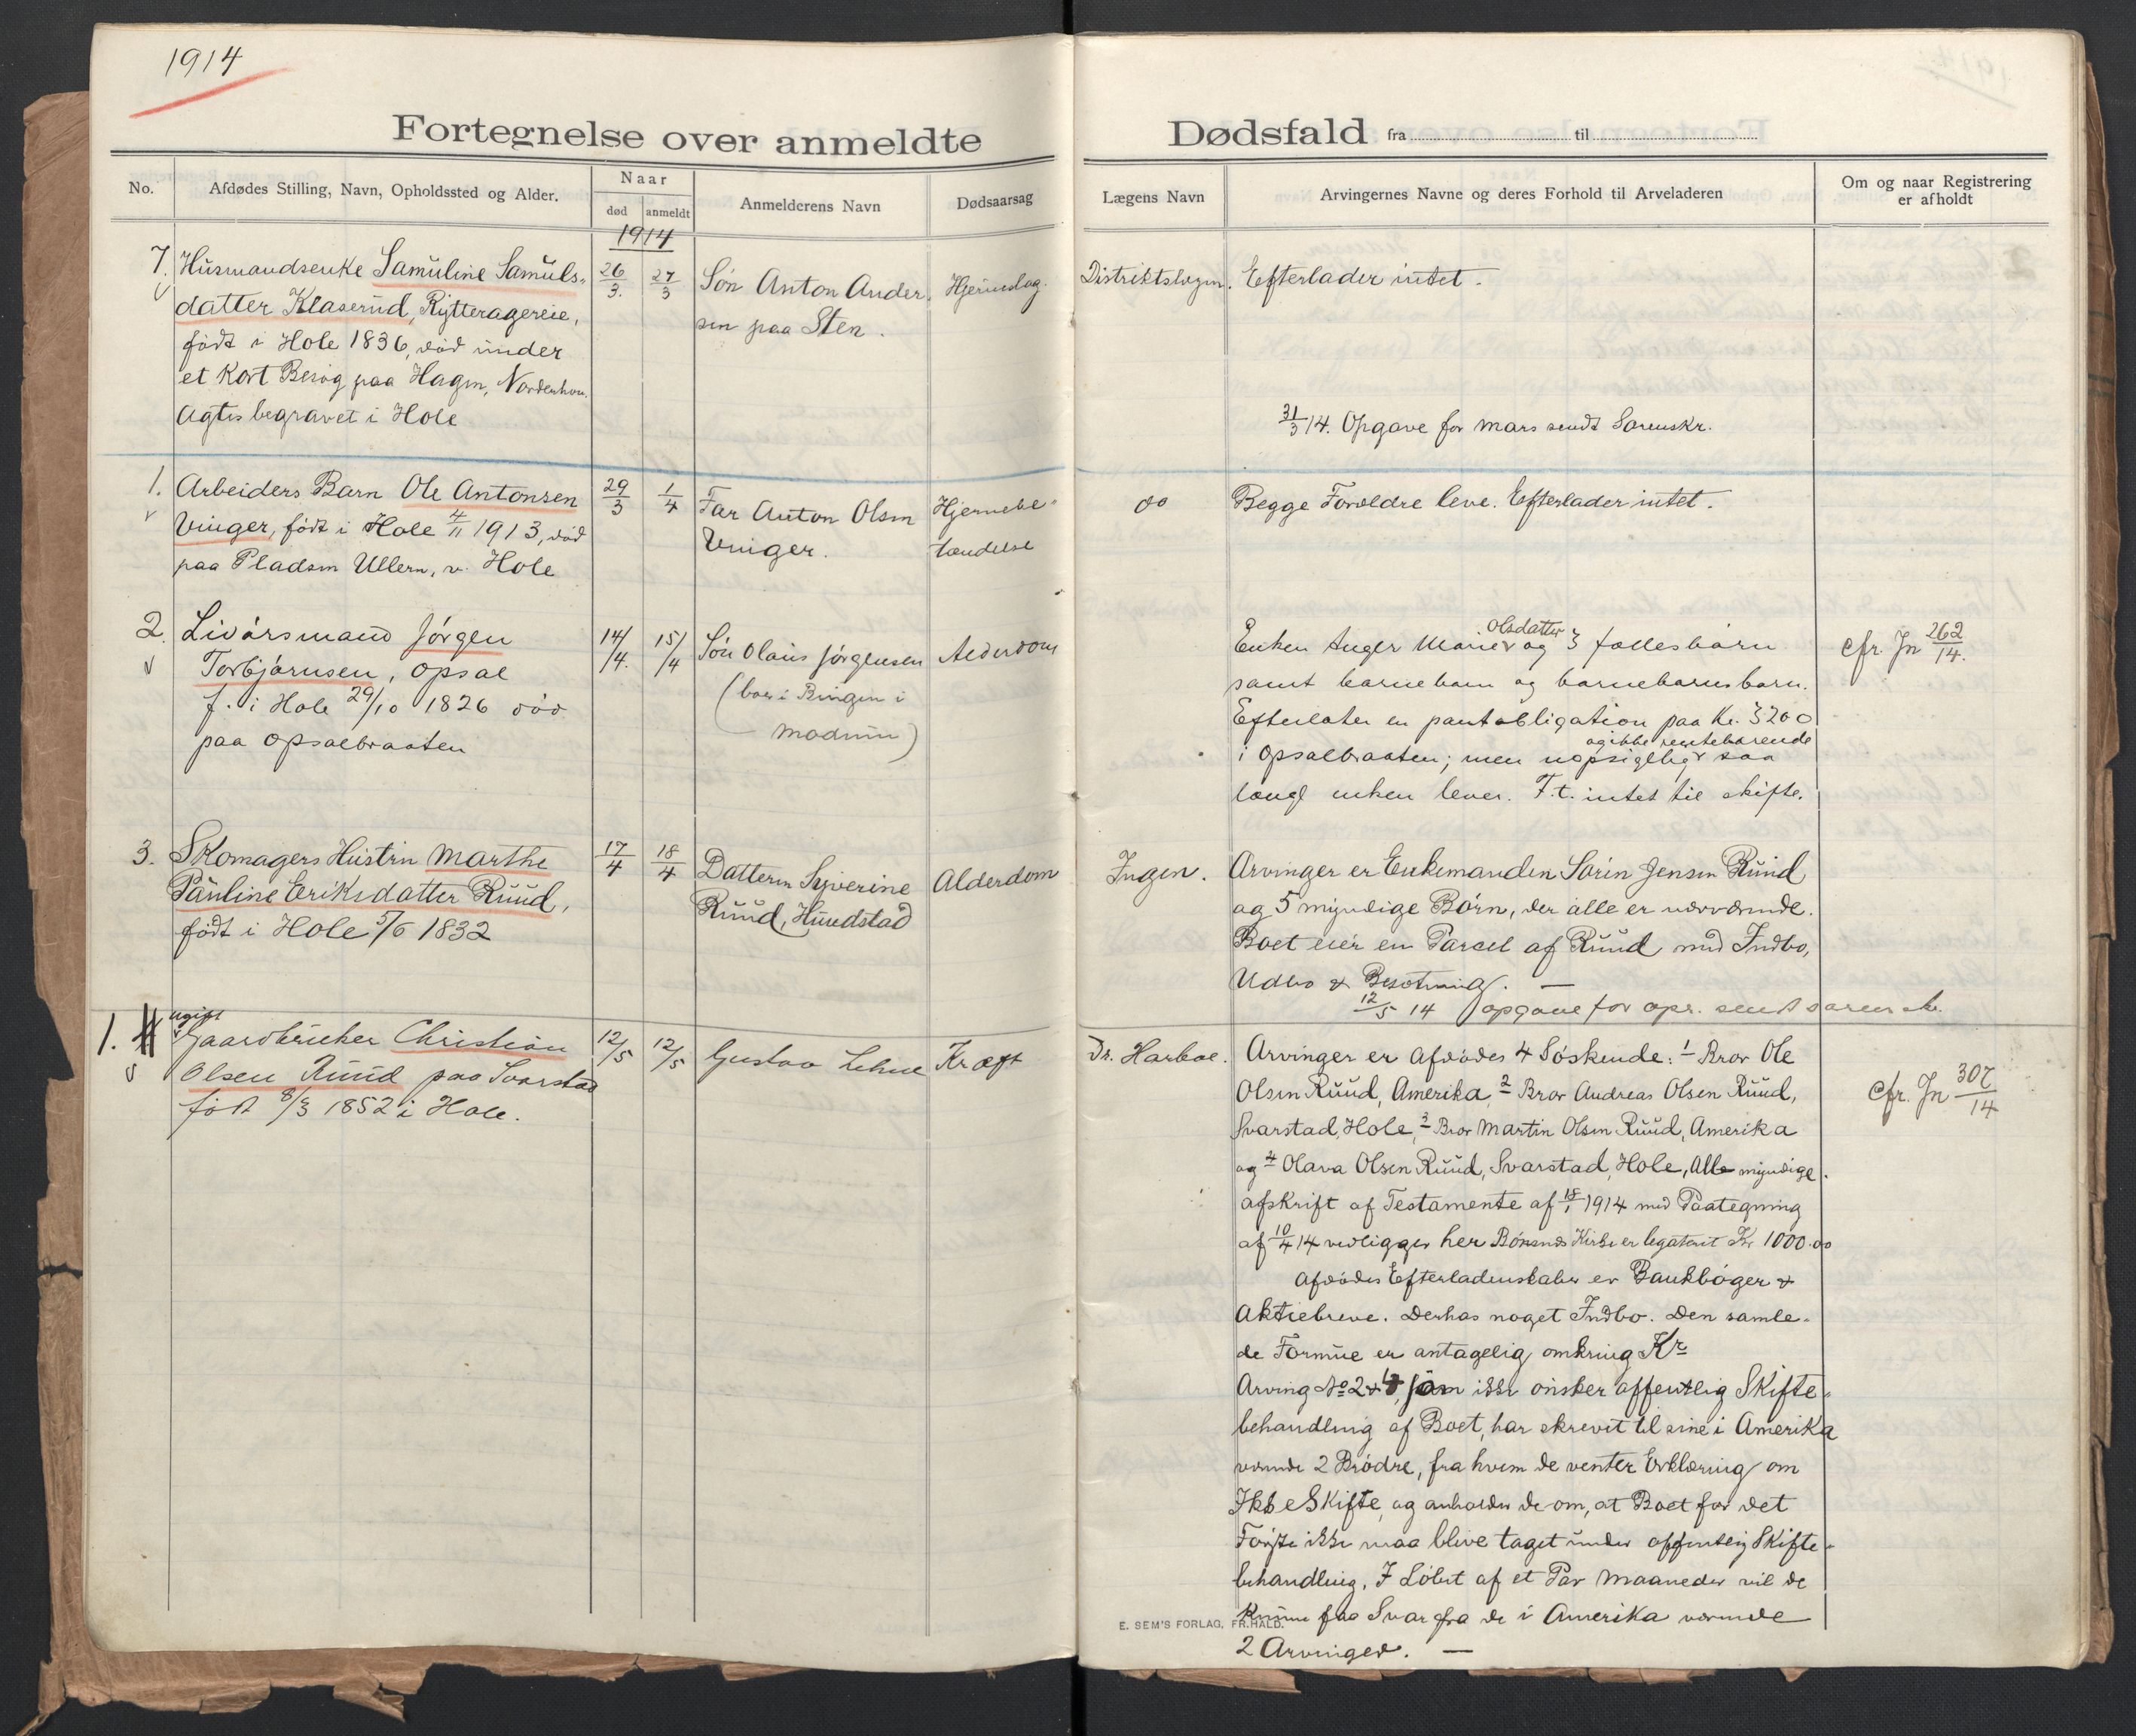 1914
Fortegnelse over anmeldte
No.
Afdødes Stilling, Navn, Opholdssted og Alder.
Naar
død
anmeldt
Anmelderens Navn
Dødsaarsag
1914
7. Husmandsenke Samuline Samuls-
datter Klaserud, Rytteragereie,
født i Hole 1836, død under
et kort Besøg paa Hagen, Norderhov.
Agtes begravet i Hole
26/3.
27/3
Søn Anton Ander-
sen paa Sten.
Hjerneslag.
1. Arbeiders Barn Ole Antonsen
Vinger, født i Hole 4/11 1913, død
paa Pladsen Ullern, v. Hole
29/3
1/4
Far Anton Olsen
Vinger.
Hjernebe-
tændelse
2. Livørsmand Jørgen
Torbjørnsen, Opsal
f. i Hole 29/10 1826 død
paa Opsalbraaten
14/4.
15/4
Søn Olaus Jørgensen
(bor i Bingen i
Modum)
Alderdom
3. Skomagers Hustru Marthe
Pauline Eriksdatter Ruud,
født i Hole 5/6 1832
17/4
18/4
Datteren Syverine
Ruud, Hundstad
Alderdom
ugift
1. 4 Gaardbruker Christian
Olsen Ruud paa Svarstad
født 8/3 1852 i Hole.
12/5
12/5
Gustav Lehne
Kræft
Dødsfald fra til
Lægens Navn
Arvingernes Navne og deres Forhold til Arveladeren
Om og naar Registrering
er afholdt
Distriktslægen.
Efterlader intet.
31/3 14. Opgave for mars sendt Sorenskr.
do
Begge Forældre leve. Efterlader intet.
Olsdatter
Enken Inger Marie v og 3 fællesbørn
samt barnebarn og barnebarnsbarn.
Efterlater en pantobligation paa Kr. 3200
og ikke rentebærende
i Opsalbraaten; men uopsigelig v saa
længe enken lever. F.t. intet til skifte.
cfr. Jn 262/14.
Ingen.
Arvinger er Enkemanden Søren Jensen Ruud
og 5 myndige Børn, der alle er nærværende.
Boet eier en Parcel af Ruud med Indbo,
Udbo & Besætning. —
12/5 14 opgave for apr. sendt sorenskr.
Dr. Harboe.
Arvinger er Afdødes 4 Søskende: 1 Bror Ole
Olsen Ruud, Amerika, 2 Bror Andreas Olsen Ruud,
Svarstad, Hole, 3 Bror Martin Olsen Ruud, Amerika
og 4 Olava Olsen Ruud, Svarstad, Hole, Alle myndige.
Afskrift af Testamente af 18/1 1914 med Paategning
af 10/4 14 vedligger her Bønsnes Kirke er legateret Kr 1000.00
Afdødes Efterladenskaber er Bankbøger &
Aktiebreve. Derhos noget Indbo. Den samle-
de Formue er antagelig omkring Kr
Arving No 2 & 4, som ikke ønsker offentlig Skifte-
behandling af Boet, har skrevet til sine i Amerika
værende 2 Brødre, fra hvem de venter Erklæring om
Ikke Skifte, og anholder de om, at Boet for det
Første ikke maa blive taget under offentlig Skifte-
behandling. I Løbet af et Par Maaneder vil de
kunne faa Svar fra de i Amerika værende
2 Arvinger. —
cfr. Jn 307/14
E. SEM'S FORLAG, FR.HALD.